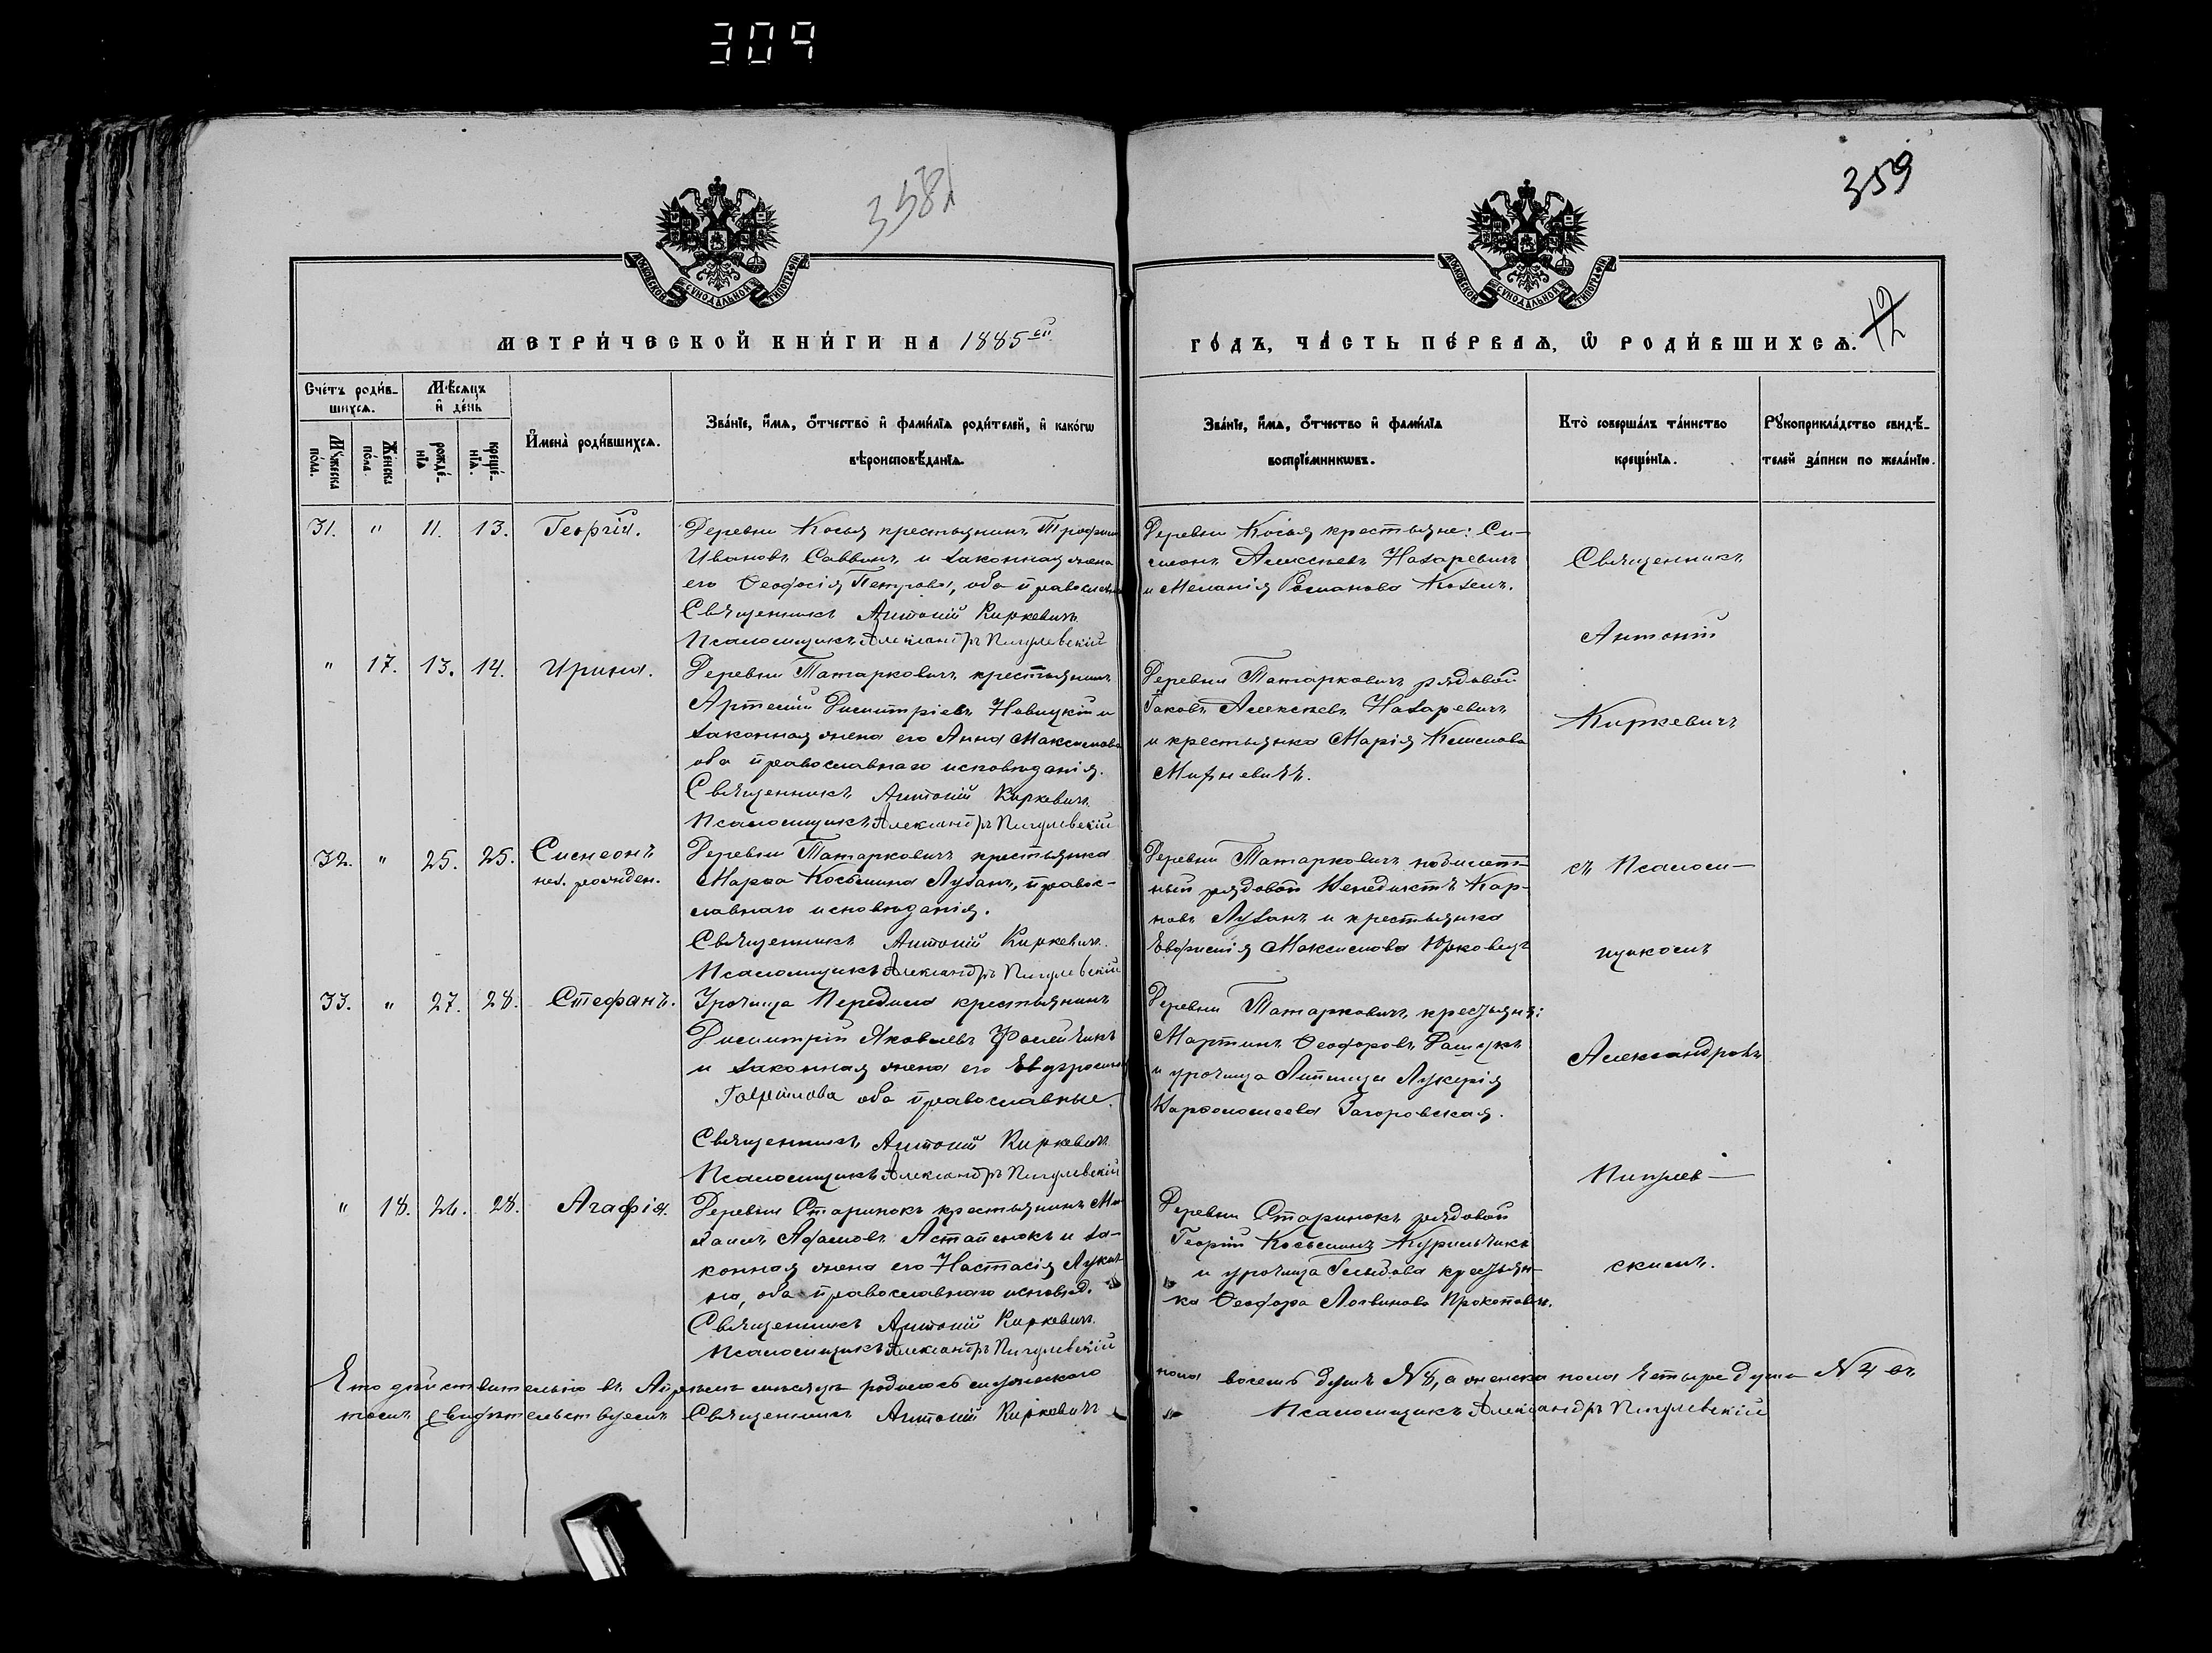 304
358
359
МОСКОВСКОЙ СѴНОДАЛЬНОЙ ТИПОГРАФІИ
МОСКОВСКОЙ СѴНОДАЛЬНОЙ ТИПОГРАФІИ
12
МЕТРИ́ЧЕСКОЙ КНИ́ГИ НА 1885ый
ГО́ДЪ, ЧА́СТЬ ПЕ́РВАѦ, Ѡ РОДИ́ВШИХСѦ.
Сче́тъ роди́в-
шихсѧ.
Мꙋ́жеска по́ла.
Же́нска по́ла.
Мѣ́сѧцъ
и҆ де́нь
рожде́-нїѧ
креще́-нїѧ.
И҆мена̀ роди́вшихсѧ.
Зва́нїе, и҆́мѧ, ѻ҆́тчество и҆ фами́лїѧ роди́телей, и҆ како́гѡ
вѣроисповѣ́данїѧ.
Зва́нїе, и҆́мѧ, ѻ҆́тчество и҆ фами́лїѧ
воспрїе́мникѡвъ.
Кто̀ соверша́лъ та́инство
креще́нїѧ.
Рꙋкоприкла́дство свидѣ́-
телей за́писи по жела́нїю.
31. " 11. 13. Георгій.
Деревни Косыя крестьянинъ Трофим
Ивановъ Саввинъ и законная жена
его Ѳеодосія Петрова, оба православн
Священникъ Антоній Киркевичъ
Псаломщикъ Александръ Пигулевскій
Деревни Косыя крестьяне: Си-
меонъ Алексѣевъ Назаревичъ
и Меланія Романова Козелъ.
" 17. 13. 14. Ирина.
Деревни Татарковичъ крестьянинъ
Артемій Димитріевъ Новицкій и
законная жена его Анна Максимова
оба православнаго исповѣданія.
Священникъ Антоній Киркевичъ
Псаломщикъ Александръ Пигулевскій
Деревни Татарковичъ рядовой
Іаковъ Алексѣевъ Назаревичъ
и крестьянка Марія Климова
32. " 25. 25. Симеонъ
нез. рожден.
Деревни Татарковичъ крестьянка
Марѳа Косьмина Лузанъ, правос-
лавнаго исповѣданія.
Священникъ Антоній Киркевичъ
Псаломщикъ Александръ Пигулевскій
Деревни Татарковичъ
ный рядовой Венедиктъ Кар-
повъ Лузанъ и крестьянка
Евфимія Максимова Юрковецъ
33. " 27. 28. Стефанъ.
Урочища Передила крестьянинъ
Димитрій Яковлевъ Фомичикъ
и законная жена его Евфросинія
Гавріилова оба православные.
Священникъ Антоній Киркевичъ
Псаломщикъ Александръ Пигулевскій
Деревни Татарковичъ крестьяне:
Мартинъ Ѳеодоровъ Дашукъ
и урочища Липницы Лукерія
Варѳоломеева Загоровская.
" 18. 26. 28. Агафія.
Деревни Старинокъ крестьянинъ Ми-
хаилъ Адамовъ Астапенокъ и за-
конная жена его Настасія Луки-
на, оба православнаго исповѣд.
Священникъ Антоній Киркевичъ
Псаломщикъ Александръ Пигулевскій
Деревни Старинокъ рядовой
Георгій Косьминъ Курильчикъ
и урочища крестьян-
ка Ѳеодора Логвинова Прокоповичъ.
Священникъ
Антоній
Киркевичъ
съ Псалом-
щикомъ
Александромъ
Пигулев-
скимъ.
Что дѣйствительно въ Апрѣлѣ мѣсяцѣ родилось мужескаго пола восемь душъ №8, а женска пола четыре души №4 въ
томъ свидѣтельствуемъ Священникъ Антоній Киркевичъ Псаломщикъ Александръ Пигулевскій